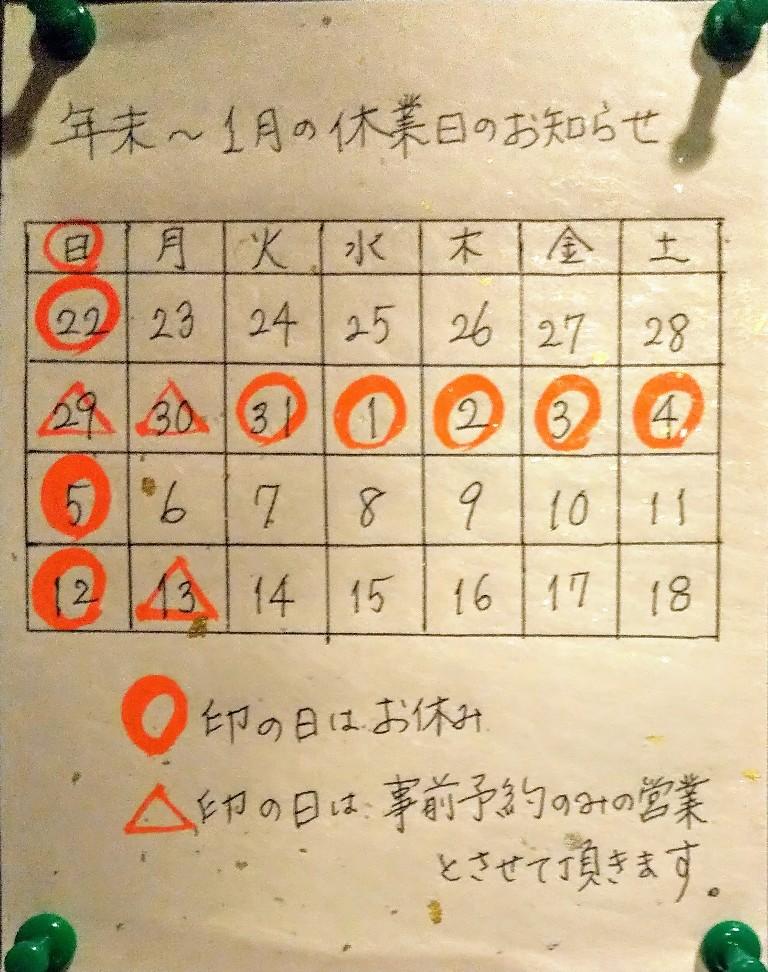 年末～1月の休業日のお知らせ
日 月 火 水 木 金 土
22 23 24 25 26 27 28
29 30 31 1 2 3 4
5 6 7 8 9 10 11
12 13 14 15 16 17 18
印の日はお休み
印の日は事前予約のみの営業
とさせて頂きます。